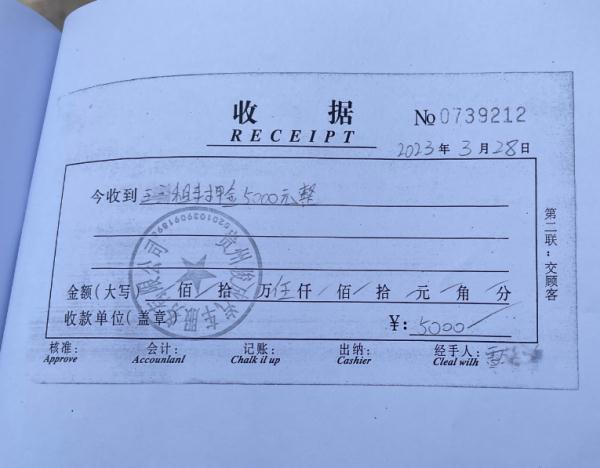 收 据
RECEIPT
№ 0739212
2023 年 3 月 28 日
今收到 租车押金 5000元整
金额(大写) 佰 拾 万 伍 仟 佰 拾 元 角 分
收款单位(盖章) ¥: 5000
第二联:交顾客
核准: 会计: 记账: 出纳: 经手人:
Approve Accountanl Chalk il up Cashier Cleal wilh